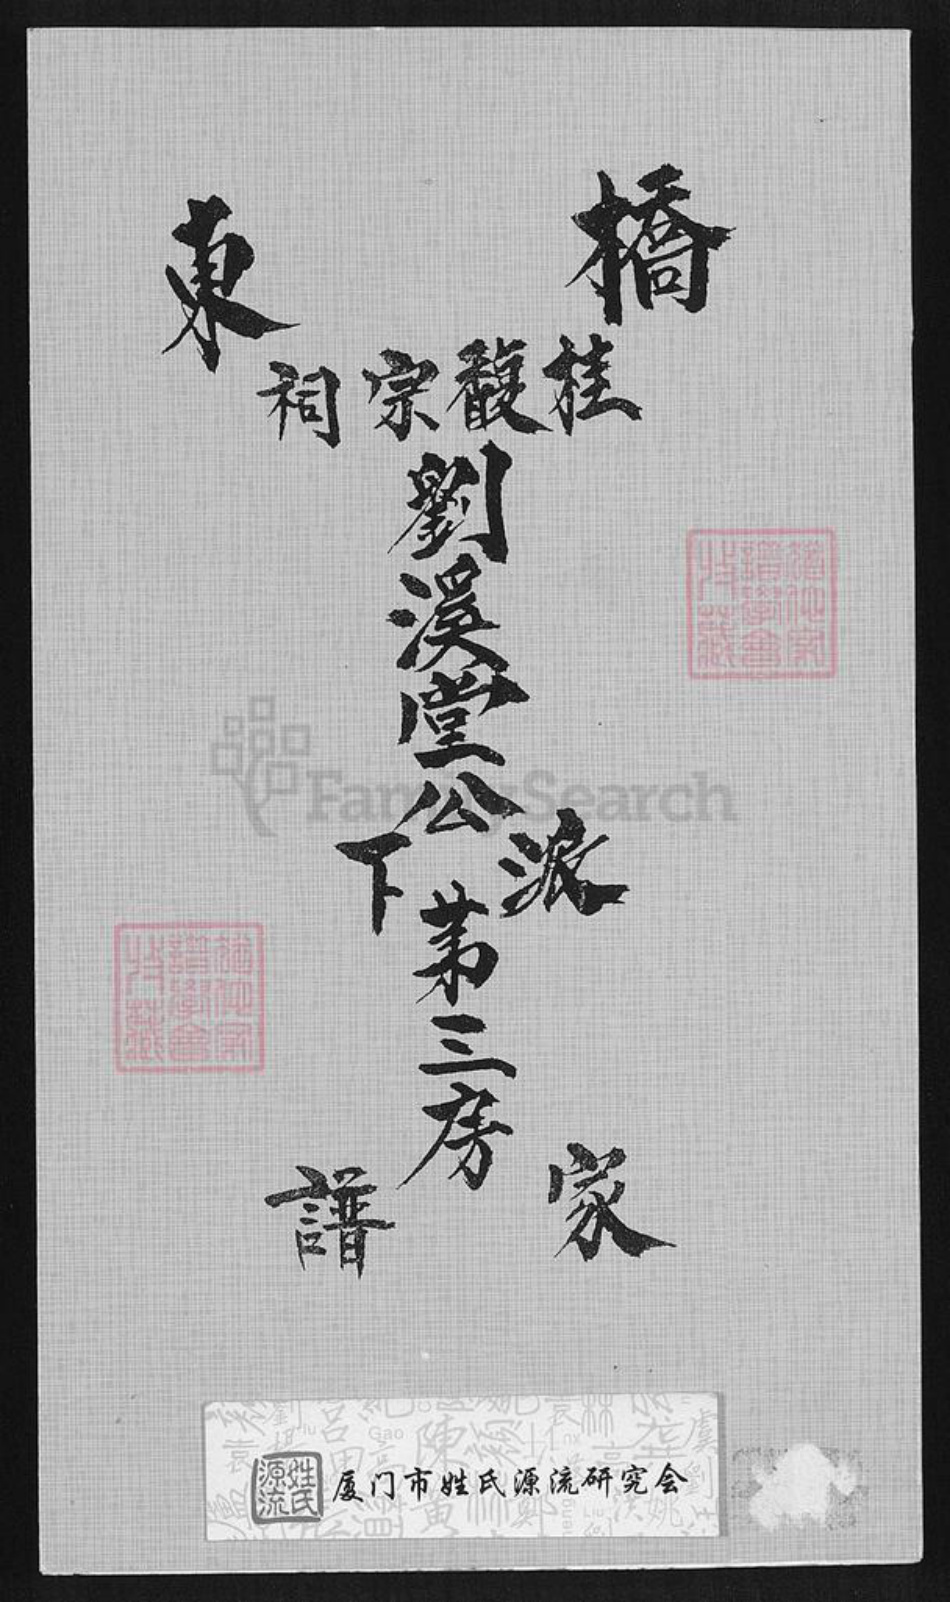 橋東
桂馥宗祠
劉溪堂公
派下
苐三房
家譜
FamilySearch
姓氏源流
厦门市姓氏源流研究会